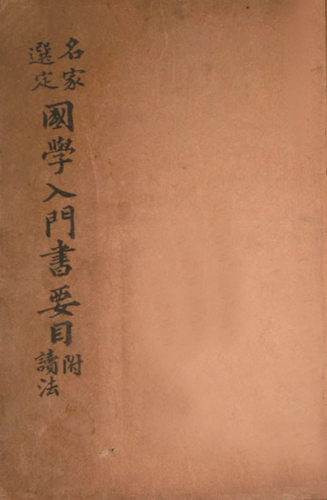 名家選定
國學入門書要目
附讀法